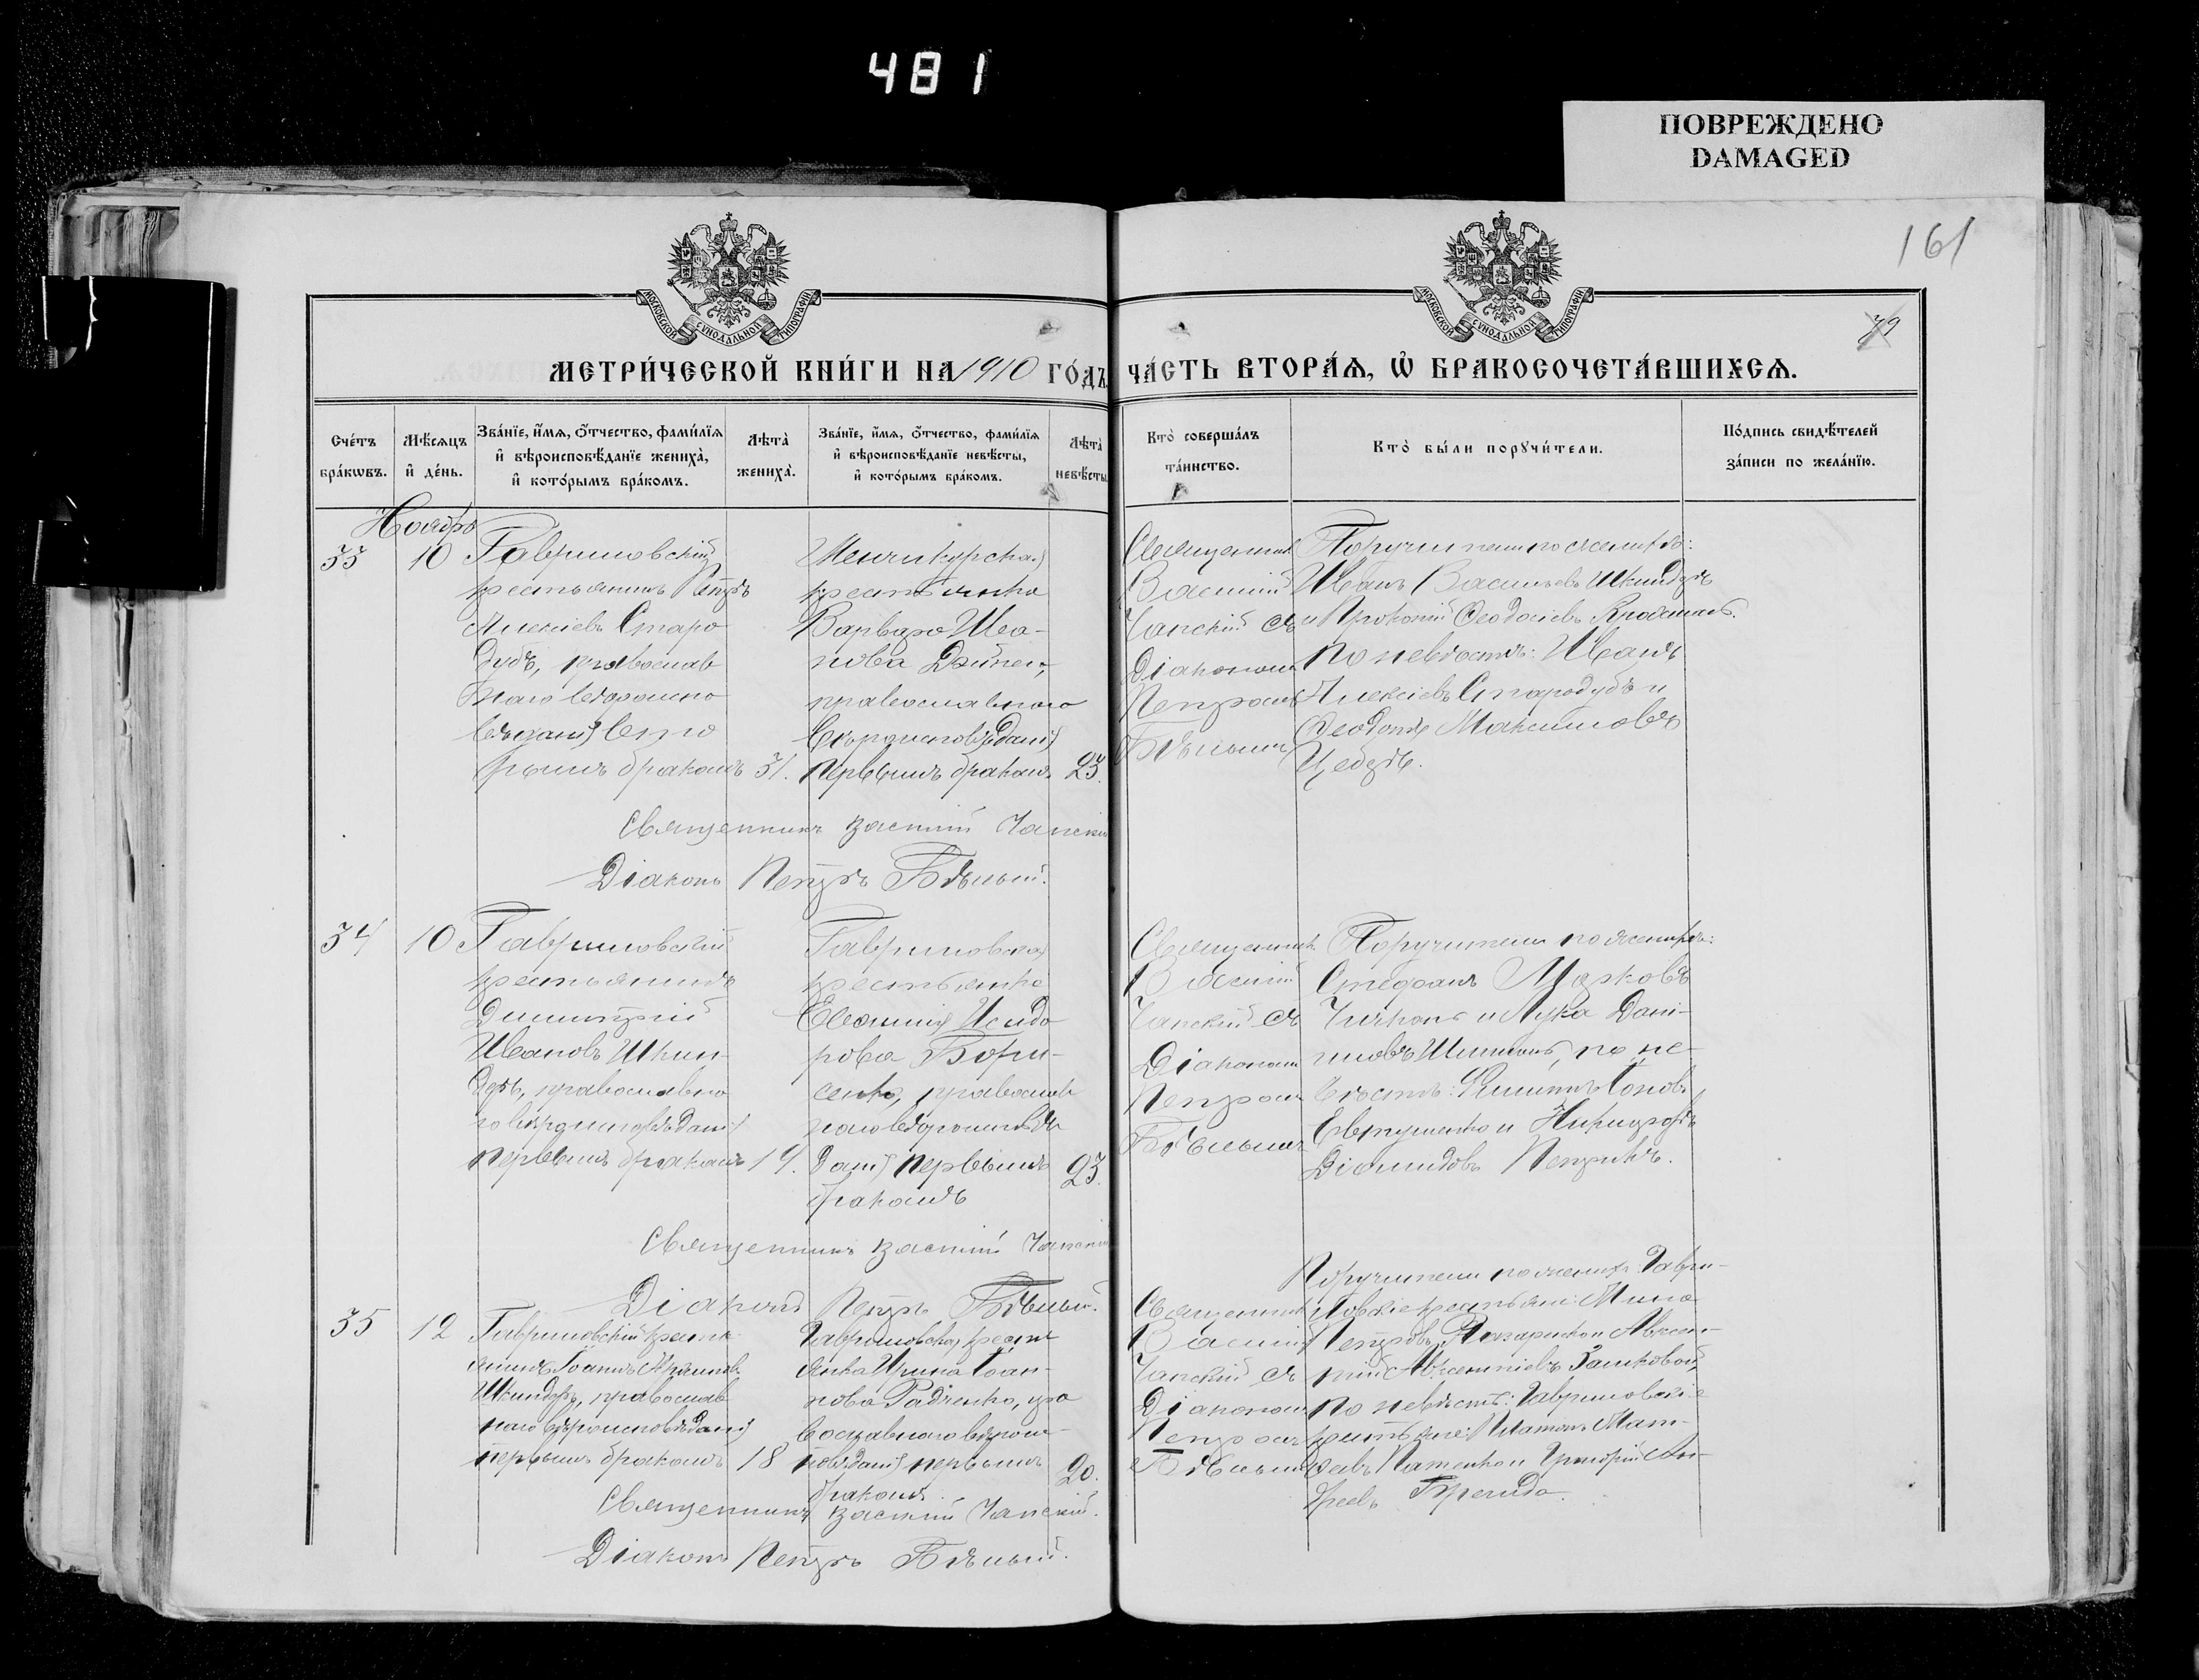 481
ПОВРЕЖДЕНО
DAMAGED
161
79
МОСКОВСКОЙ СѴНОДАЛЬНОЙ ТИПОГРАФІИ
МОСКОВСКОЙ СѴНОДАЛЬНОЙ ТИПОГРАФІИ
МЕТРИ́ЧЕСКОЙ КНИ́ГИ НА 1910 ГО́ДЪ
ЧА́СТЬ ВТОРА́Ѧ, Ѽ БРАКОСОЧЕТА́ВШИХСѦ.
Сче́тъ бра́кѡвъ.
Мѣ́сяцъ и҆ де́нь.
Зва́нїе, и҆́мѧ, ѻ҆́тчество, фами́лїѧ и҆ вѣроисповѣ́данїе жениха̀, и҆ кото́рымъ бра́комъ.
Лѣта̀ жениха̀.
Зва́нїе, и҆́мѧ, ѻ҆́тчество, фами́лїѧ и҆ вѣроисповѣ́данїе невѣ́сты, и҆ кото́рымъ бра́комъ.
Лѣта̀ невѣ́сты
Кто̀ соверша́лъ та́инство.
Кто̀ бы́ли порꙋчи́тели.
По́дпись свидѣ́телей за́писи по жела́нїю.
Ноябрь
33
10
Гавриловскій
крестьянинъ Петръ
Алексіевъ Старо
дубъ, православ
наго вѣроиспо
вѣданія вто
рымъ бракомъ
31.
крестьянка
Варвара Ива-
нова
православного
вѣроисповѣданія
первымъ бракомъ
23.
Священникъ
Василій
Чапскій съ
Діакономъ
Петромъ
Бѣлымъ
Поручители по женихѣ:
Иванъ Васильевъ Шкиндеръ
и Прокопій Ѳеодосіевъ
по невѣстѣ: Иванъ
Алексіевъ Стародубъ и
Максимовъ
Священникъ Василій Чапскій
Діаконъ Петръ Бѣлый.
34
10
Гавриловскій
крестьянинъ
Димитрій
Ивановъ Шкин-
деръ, православна
го вѣроисповѣданія
первымъ бракомъ
19.
Гавриловская
крестьянка
Евѳимія Исидо
рова Бори-
сенко, православ
наго вѣроисповѣ
данія первымъ
бракомъ
23.
Священникъ
Василій
Чапскій съ
Діакономъ
Петромъ
Бѣлымъ
Поручители по женихѣ:
Стефанъ Марковъ
и Лука Дані-
иловъ по не-
вѣстѣ:
Евтушенко и Никифоръ
Діомидовъ
Священникъ Василій Чапскій
Діаконъ Петръ Бѣлый.
35
12
Гавриловскій кресть
янинъ Іоаннъ
Шкиндеръ, православ
наго вѣроисповѣданія
первымъ бракомъ
18
Гавриловская кресть
янка Ирина Іоан-
нова Радченко, пра
вославнаго вѣроис-
повѣданія первымъ
бракомъ
20.
Священникъ
Василій
Чапскій съ
Діакономъ
Петромъ
Бѣлымъ
Поручители по женихѣ: Гаври-
ловскіе крестьяне: Мина
Петровъ и Авксен-
тій Авксентіевъ
по невѣстѣ: Гавриловскіе
крестьяне: Платонъ Мат-
ѳеевъ и Григорій Ан-
дреевъ
Священникъ Василій Чапскій.
Діаконъ Петръ Бѣлый.